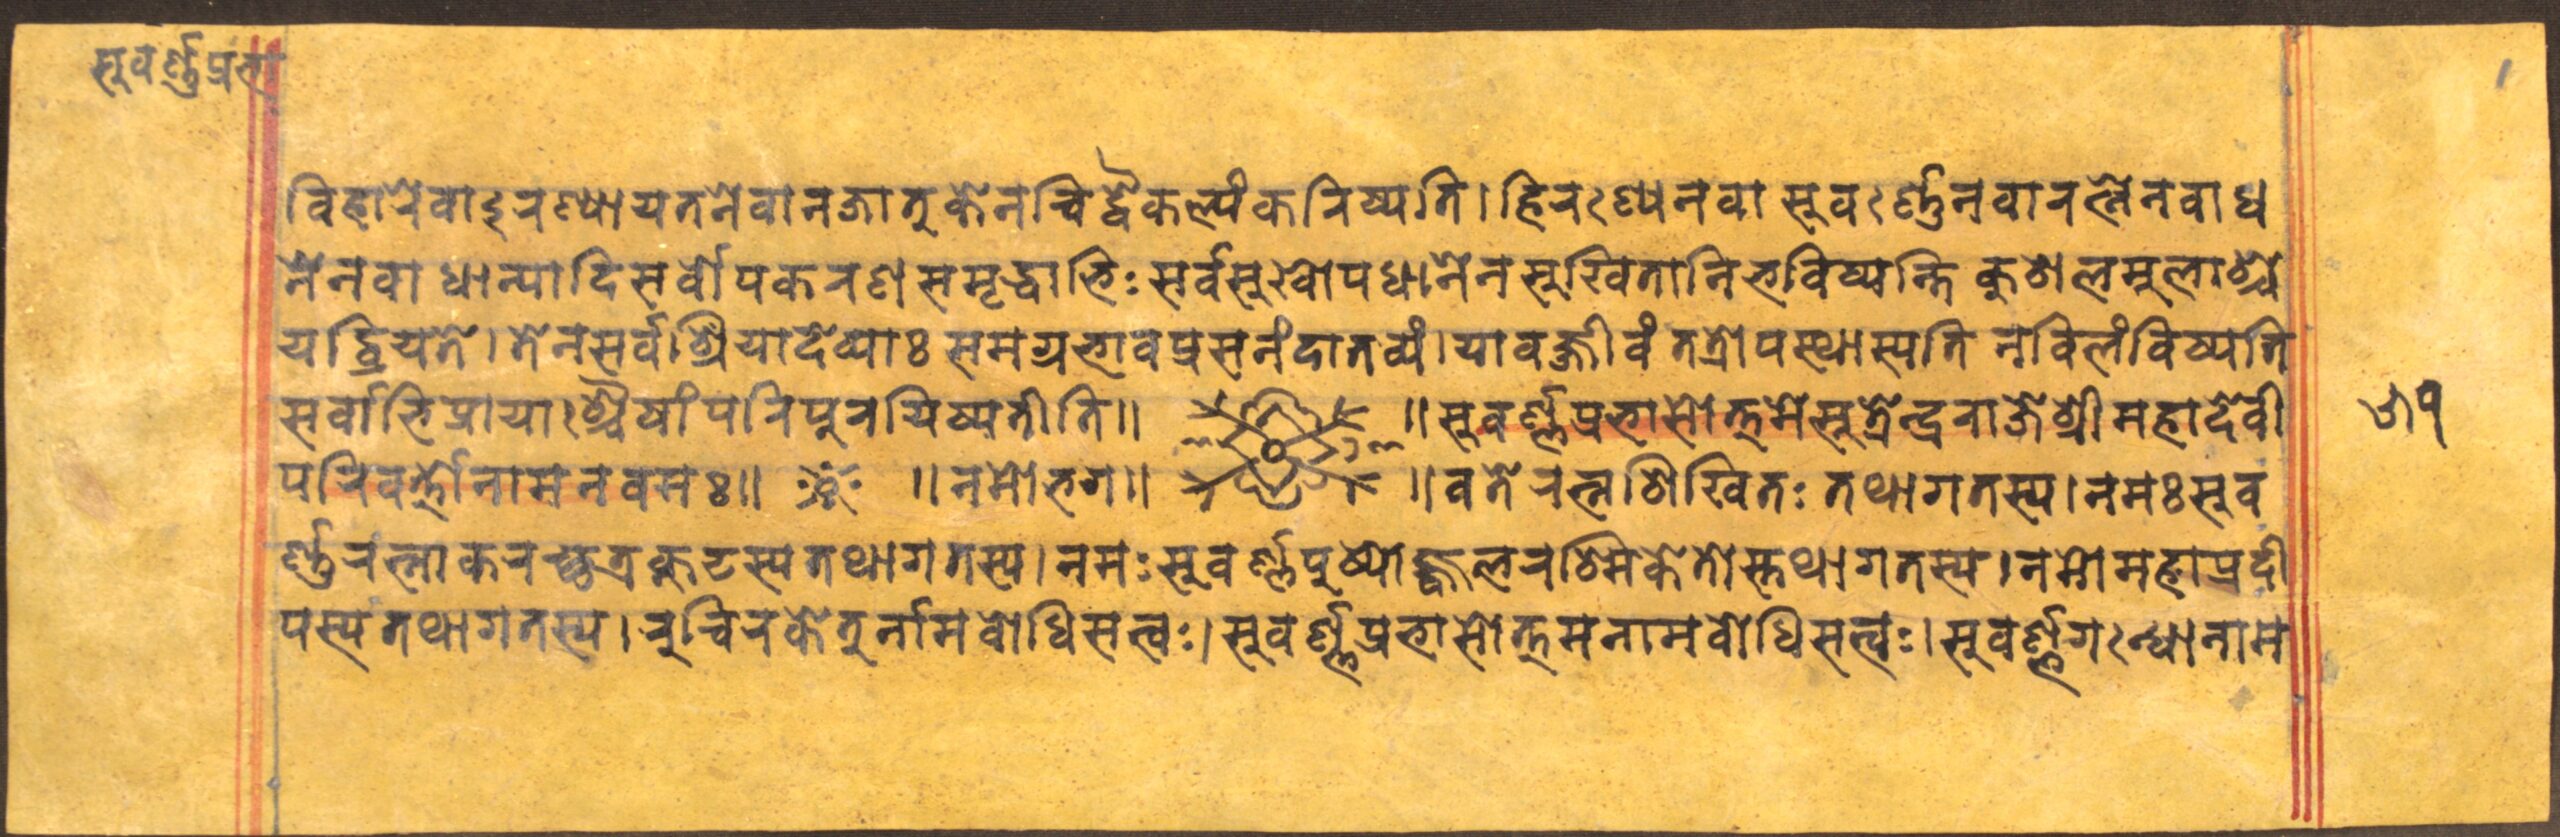 सुवर्ण्णप्रभा
विहारेवाऽरण्यायतनेवानजातुकेनचिद्वैकल्पंकरिष्यति।हिरःण्यनवा सूवःर्ण्णनवारत्नेनवाध
नेनवा धान्यादिसर्वोपकरणसमृद्धाभिः सर्वसुखोपधानेनसुखितानिभविष्यन्ति कुशलमुलाश्चे
यद्ध्रियते।तेनसर्वश्रियादेव्याः समग्रभावप्रसनंदातव्यं।यावज्जीवं तत्रोपस्थास्यति नविलंविष्यति
सर्वाभिप्रायाःश्चैषां परिपुरयिष्यतीति॥ ॥सुवर्ण्णप्रभासोत्तमेसुत्रेन्द्रराजेश्रीमहादेवी
परिवर्त्तोनामनवमः॥ ॥नमोभग॥ ॥वतेरत्नशिखितः तथागतस्य।नमःसुव
र्ण्णरत्नाकरच्छत्रकुटस्यतथागतस्य।नमःसुवर्ण्णपुष्पोज्ज्वलरश्मिकेतोस्तथागतस्य।नमोमहाप्रदी
पस्यतथागतस्य।रुचिरकेतुर्नामवोधिसत्त्वः।सुवर्ण्णप्रभासोत्तमनामवोधिसत्त्वः।सुवर्ण्णगःन्धानाम